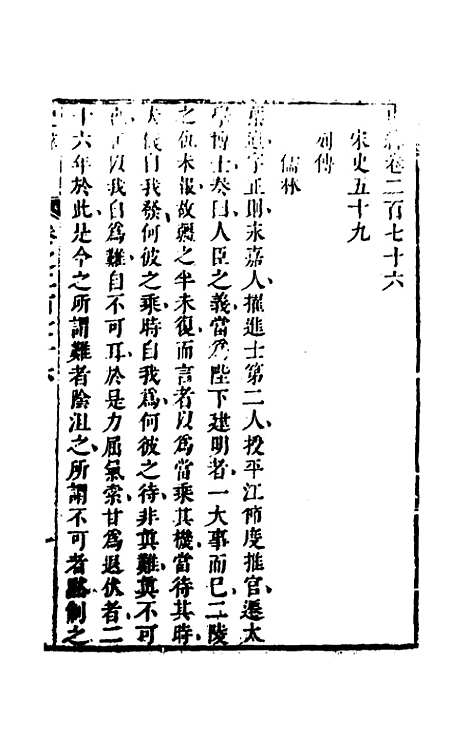 史纂卷二百七十六
宋史五十九
列傳
儒林
葉適字正則永嘉人擢進士第二人授平江節度推官遷太
學博士奏曰人臣之義當爲陛下建明者一大事而巳二陵
之仇未報故疆之半未復而言者以爲當乘其機當待其時
然機自我發何彼之乘時自我爲何彼之待非眞難眞不可
正以我自爲難自不可耳於是力屈氣索甘爲退伏者二
十六年於此是今之所謂難者陰沮之所謂不可者黙制之